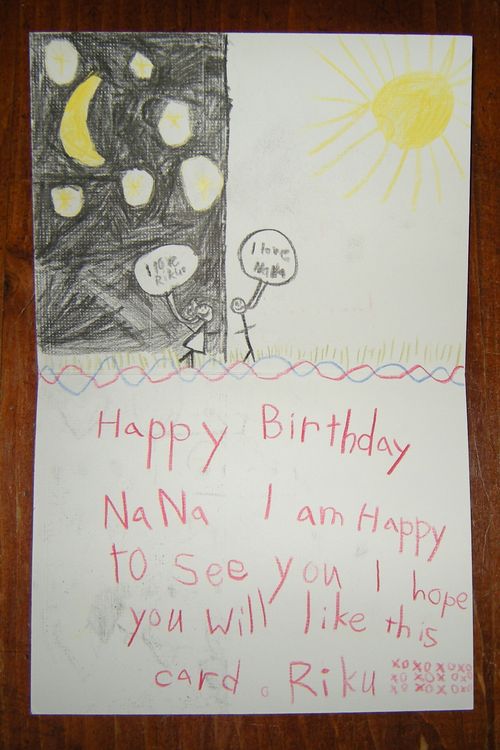 I love
Riku
I love
NaNa
Happy Birthday
NaNa I am Happy
to see you I hope
you will like this
card. Riku xoxoxoxo
xoxoxoxo
xoxoxoxo